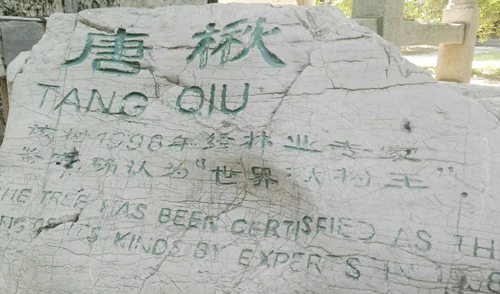 唐楸
TANG QIU
该树1998年经林业专家
鉴定确认为“世界楸树王”
THE TREE HAS BEEN CERTISFIED AS TH
NG OF ITS KINDS BY EXPERTS IN 1998